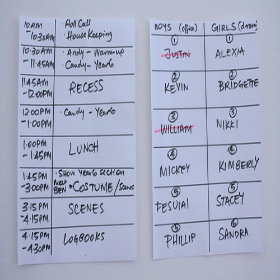 10AM - 10:30AM
Roll Call
- Housekeeping
10:30AM - 11:45AM
- Andy - Warm-up
- Candy - Year 6
11:45AM - 12:00PM
RECESS
12:00PM - 1:00PM
- Candy - Year 6
1:00PM - 1:45PM
LUNCH
1:45PM - 3:00PM
- Show Year 6 Section
BEN - COSTUME/Scenes
3:15PM - 4:15PM
SCENES
4:15PM - 4:30PM
LOGBOOKS
BOYS (office)
GIRLS
① JUSTIN
① ALEXIA
② KEVIN
② BRIDGETTE
③ WILLIAM
③ NIKKI
④ MICKEY
④ KIMBERLY
⑤ FESUIAI
⑤ STACEY
⑥ PHILLIP
⑥ SANDRA